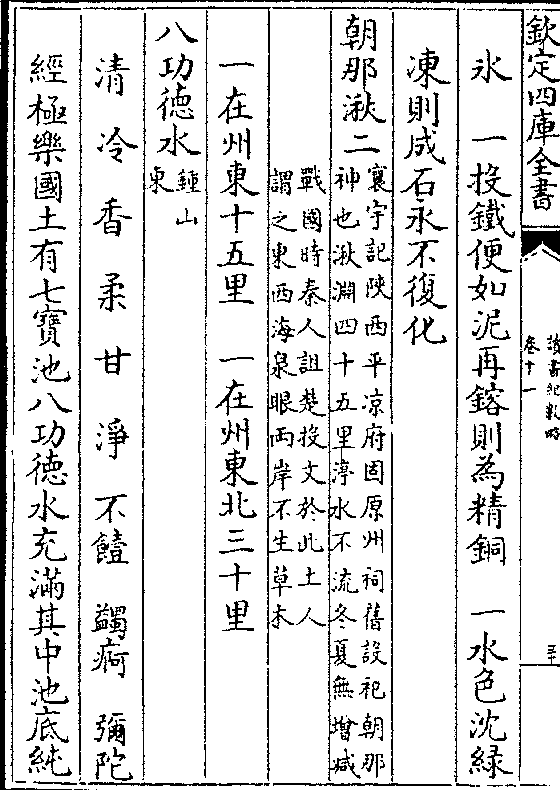 欽定四庫全書
讀書紀數略
卷十一
水　一投鐵便如泥再鎔則為精銅　一水色沈緑
凍則成石永不復化
朝那湫二
寰宇記陜西平凉府固原州祠舊設祀朝那
神也湫淵四十五里渟水不流冬夏無增减
戰國時秦人詛楚投文於此土人
謂之東西海泉眼兩岸不生草木
一在州東十五里　一在州東北三十里
八功徳水
鍾山
東
清　冷　香　柔　甘　淨　不饐　蠲痾　彌陀
經極樂國土有七寶池八功徳水充滿其中池底純